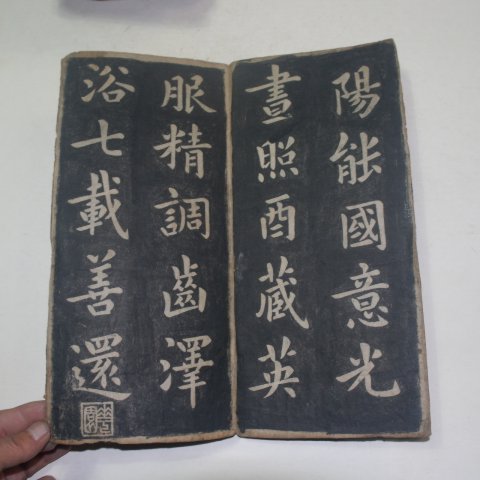 陽能國意光
晝照酉藏英
服精調齒澤
浴七載善還